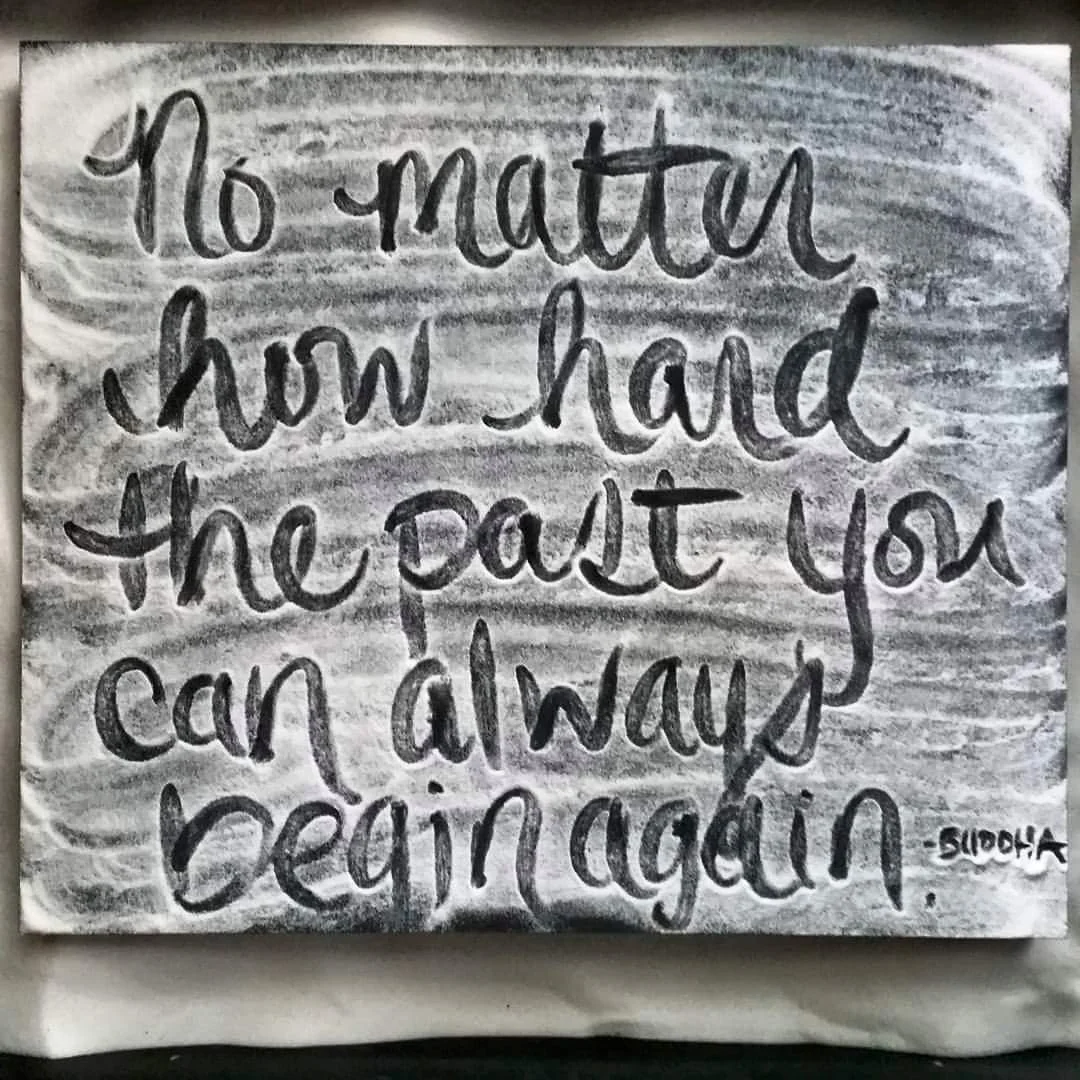 No matter
how hard
the past you
can always
begin again.
-BUDDHA